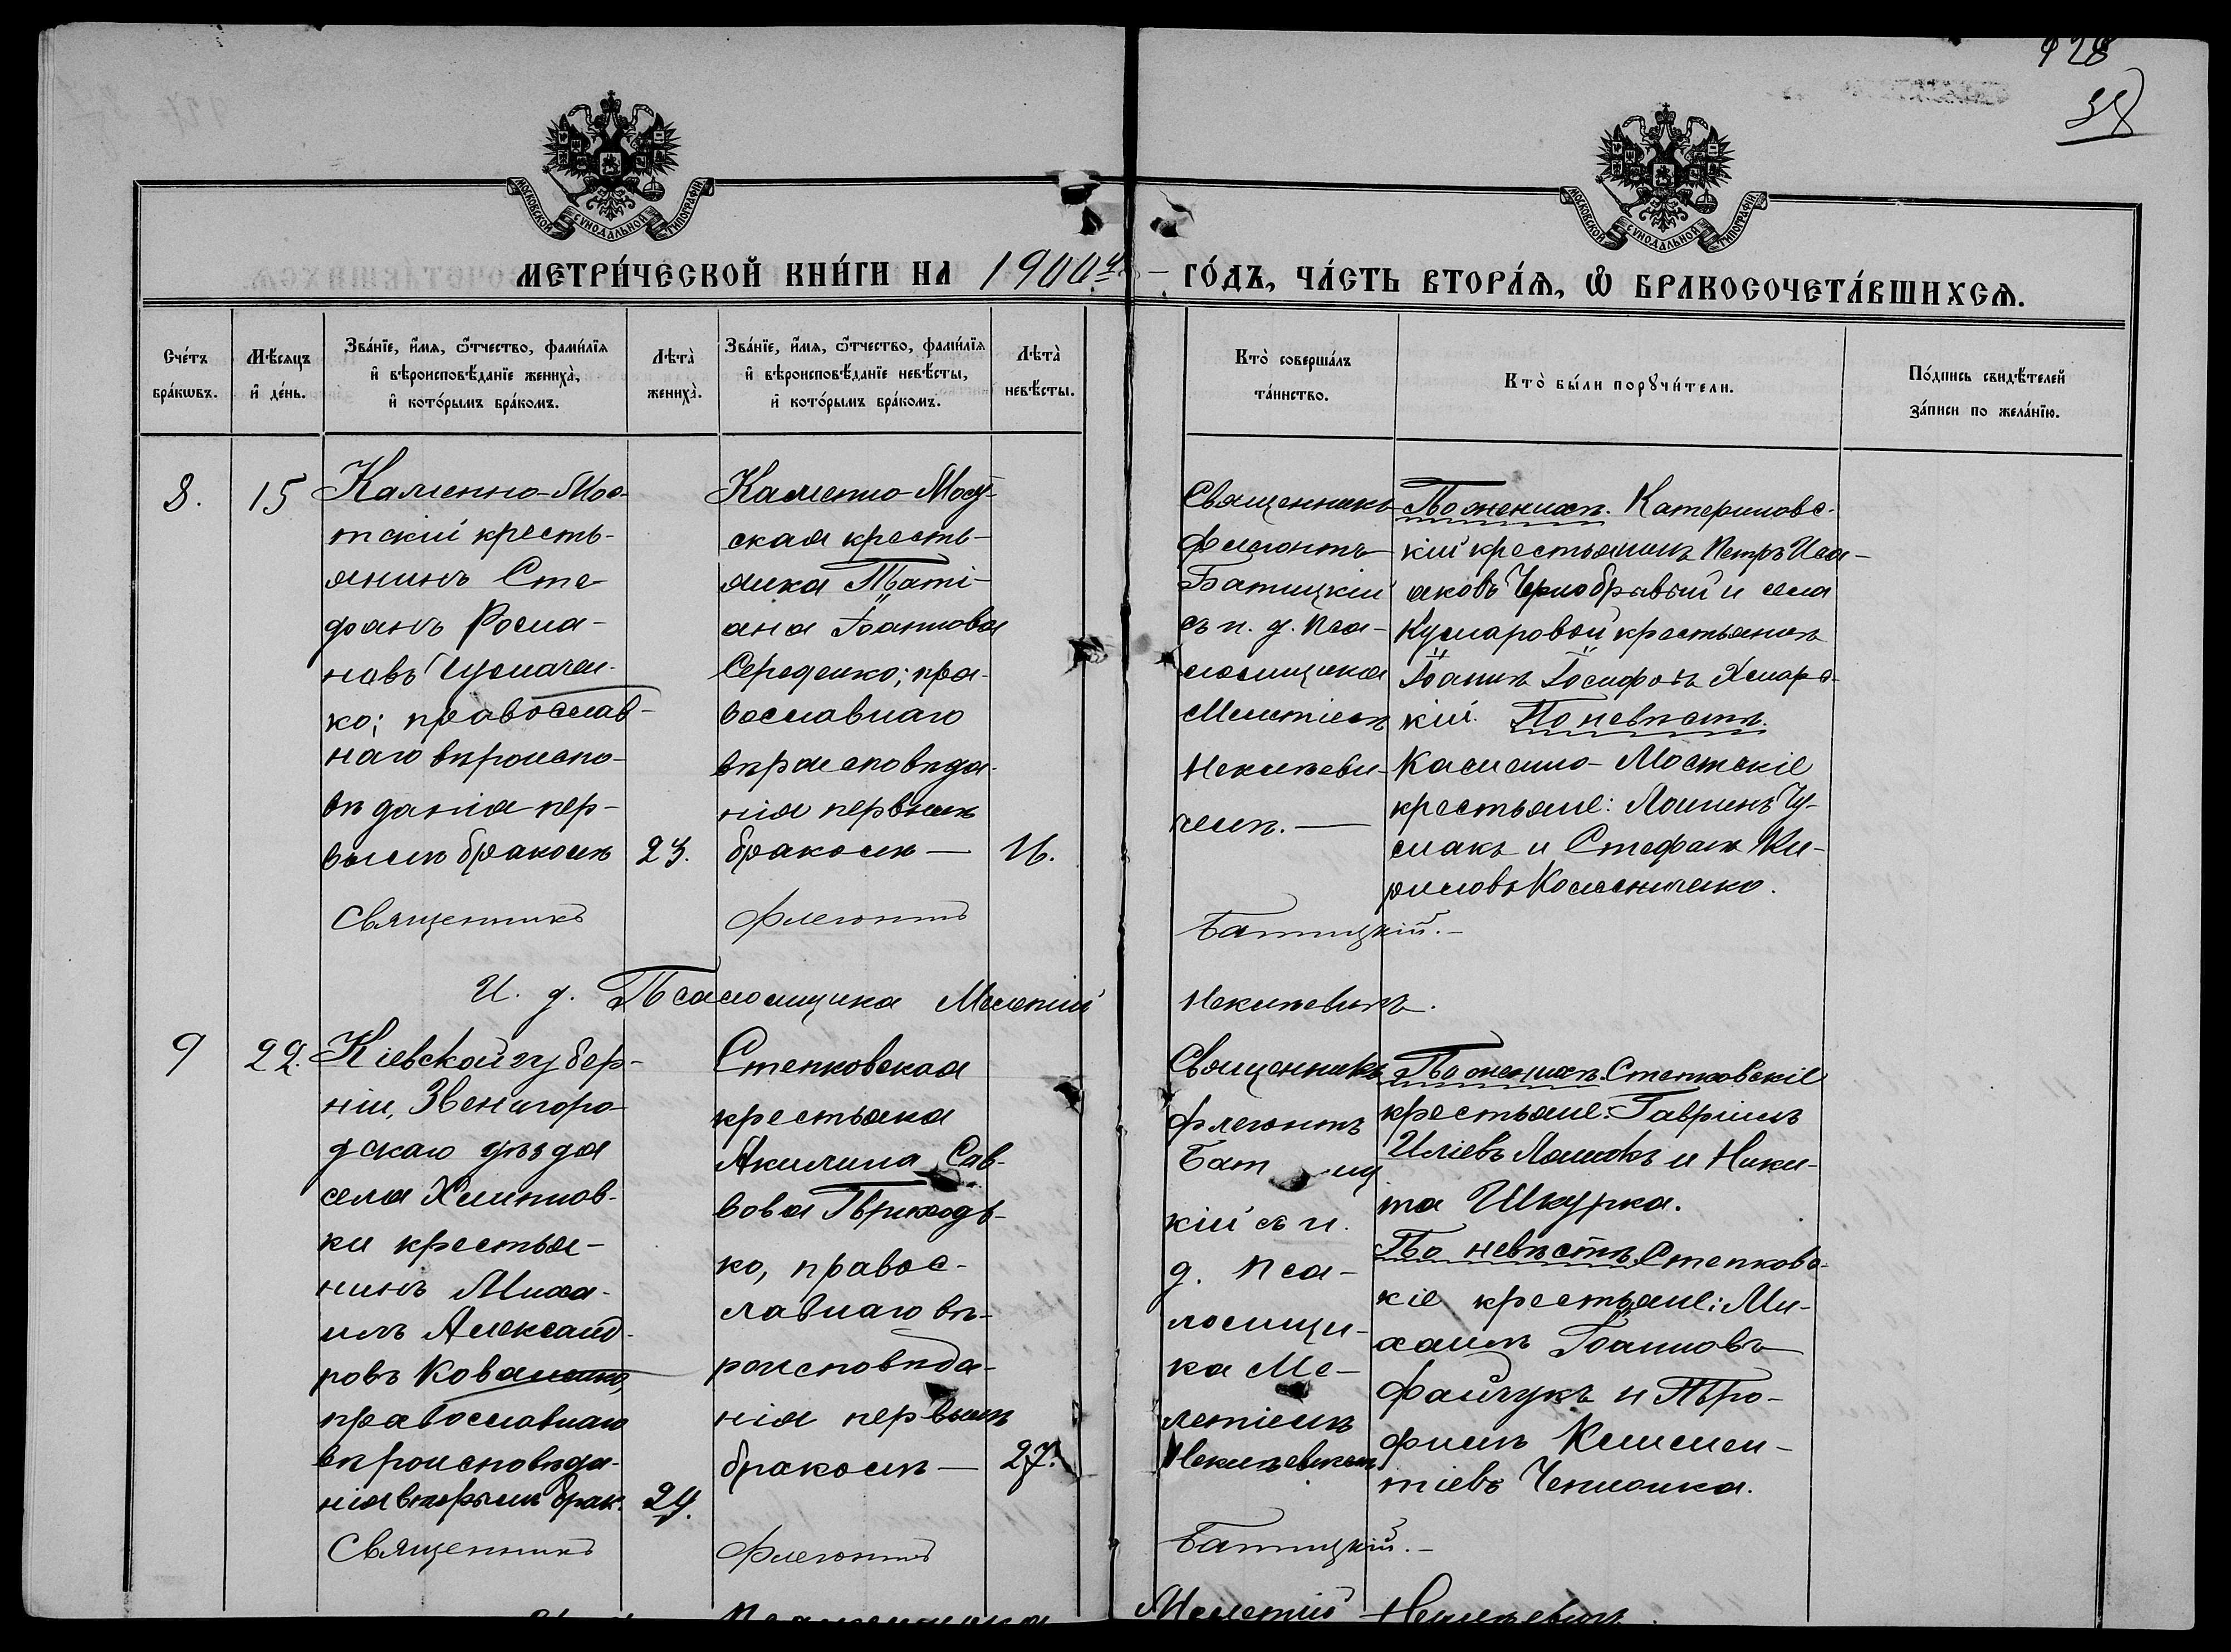 928
38
МОСКОВСКОЙ СУНОДАЛЬНОЙ ТИПОГРАФІИ
МОСКОВСКОЙ СУНОДАЛЬНОЙ ТИПОГРАФІИ
МЕТРИ́ЧЕСКОЙ КНИ́ГИ НА 1900й – ГО́ДЪ, ЧА́СТЬ ВТОРА́Я, Ѿ БРАКОСОЧЕТА́ВШИХСЯ.
Сче́тъ бра́кѡвъ.
Мѣ́сяцъ и҆ де́нь.
Зва́нїе, и҆́мя, ѻ҆́тчество, фамѝлїя и҆ вѣроисповѣ́данїе жениха̀, и҆ кото́рымъ бра́комъ.
Лѣта̀ жениха̀.
Зва́нїе, и҆́мя, ѻ҆́тчество, фамѝлїя и҆ вѣроисповѣ́данїе невѣ́сты, и҆ кото́рымъ бра́комъ.
Лѣта̀ невѣ́сты.
Кто̀ соверша́лъ та́инство.
Кто̀ бы́ли порꙋчи́тели.
По́дпись свидѣ́телей за́писи по жела́нїю.
8.
15
Каменно-Мос-
тскій кресть-
янинъ Сте
фанъ Рома-
новъ Чумачен-
ко; православ-
наго вѣроиспо-
вѣданія пер-
вымъ бракомъ
23.
Каменно-Мост-
ская кресть-
янка Таті-
ана Іоаннова
Середенко; пра-
вославнаго
вѣроисповѣда-
нія первымъ
бракомъ —
16.
Священникъ
Флегонтъ
Батицкій
съ и. д. Пса-
ломщика
Мелетіемъ
Некипеви-
чемъ. —
По женихѣ. Катериновс-
кій крестьянинъ Петръ Иса-
аковъ Чернобривый и села
крестьянинъ
Іоаннъ Іосифовъ
кій. По невѣстѣ.
Каменно-Мостскіе
крестьяне: Логинъ Чу-
макъ и Стефанъ Ки-
риловъ Колесниченко.
Священникъ Флегонтъ Батицкій. –
И. д. Псаломщика Мелетій Некипевичъ.
9
22.
Кіевской губер-
ніи, Звенигоро-
дскаго уѣзда
села Хлипнов-
ки крестья-
нинъ Миха-
илъ Александ-
ровъ Коваленко,
православнаго
вѣроисповѣда-
нія вторымъ брак.
24.
Степковская
крестьянка
Акилина Сав-
вова Приходь-
ко, правос-
лавнаго вѣ-
роисповѣда-
нія первымъ
бракомъ —
27.
Священникъ
Флегонтъ
Батиц
кій съ и.
д. Пса-
ломщи-
ка Ме-
летіемъ
Некипевичемъ
По женихѣ. Степковскіе
крестьяне: Гавріилъ
Иліевъ и Ники-
та Шкурка.
По невѣстѣ. Степковс-
кіе крестьяне: Ми-
хаилъ Іоанновъ
Файчукъ и Тро-
фимъ Климен-
тіевъ
Священникъ Флегонтъ Батицкій. –
Псаломщика Мелетій Некипевичъ.